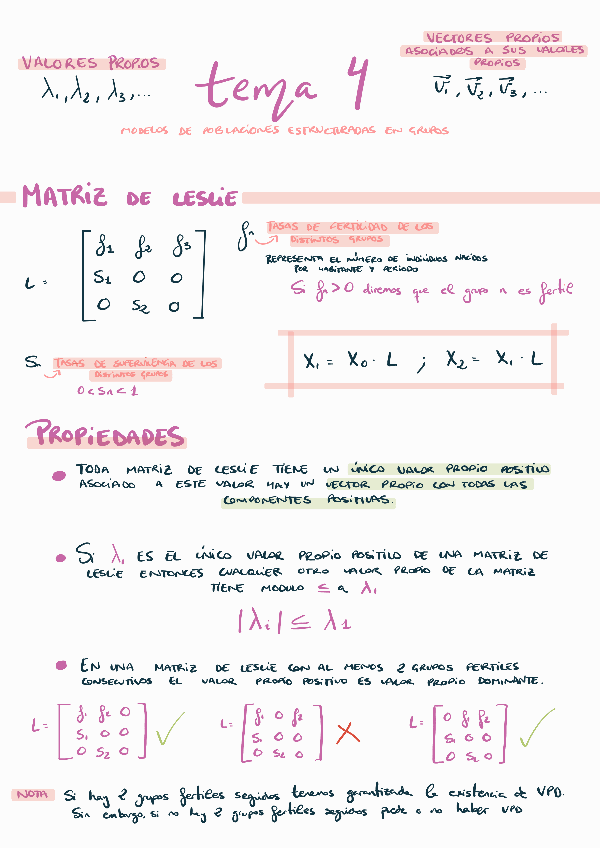 VALORES PROPIOS
λ₁, λ₂, λ₃, ...
tema 4
VECTORES PROPIOS
ASOCIADOS A SUS VALORES
PROPIOS
v⃗₁, v⃗₂, v⃗₃, ...
MODELOS DE POBLACIONES ESTRUCTURADAS EN GRUPOS
MATRIZ DE LESLIE
L = [ f₁ f₂ f₃
S₁ 0 0
0 S₂ 0 ]
fₙ TASAS DE FERTILIDAD DE LOS
DISTINTOS GRUPOS
REPRESENTA EL NÚMERO DE INDIVIDUOS NACIDOS
POR HABITANTE Y PERIODO
Si fₙ > 0 diremos que el grupo n es fertil
Sₙ TASAS DE SUPERVIVENCIA DE LOS
DISTINTOS GRUPOS
0 < Sₙ < 1
X₁ = X₀ · L ; X₂ = X₁ · L
PROPIEDADES
• TODA MATRIZ DE LESLIE TIENE UN ÚNICO VALOR PROPIO POSITIVO
ASOCIADO A ESTE VALOR HAY UN VECTOR PROPIO CON TODAS LAS
COMPONENTES POSITIVAS.
• Si λ₁ ES EL ÚNICO VALOR PROPIO POSITIVO DE UNA MATRIZ DE
LESLIE ENTONCES CUALQUIER OTRO VALOR PROPIO DE LA MATRIZ
TIENE MODULO ≤ a λ₁
|λᵢ| ≤ λ₁
• EN UNA MATRIZ DE LESLIE CON AL MENOS 2 GRUPOS FERTILES
CONSECUTIVOS EL VALOR PROPIO POSITIVO ES VALOR PROPIO DOMINANTE.
L = [ f₁ f₂ 0
S₁ 0 0
0 S₂ 0 ] ✓
L = [ f₁ 0 f₂
S₁ 0 0
0 S₂ 0 ] ✗
L = [ 0 f₁ f₂
S₁ 0 0
0 S₂ 0 ] ✓
NOTA Si hay 2 grupos fertiles seguidos tenemos garantizada la existencia de VPD.
Sin embargo, si no hay 2 grupos fertiles seguidos puede o no haber VPD